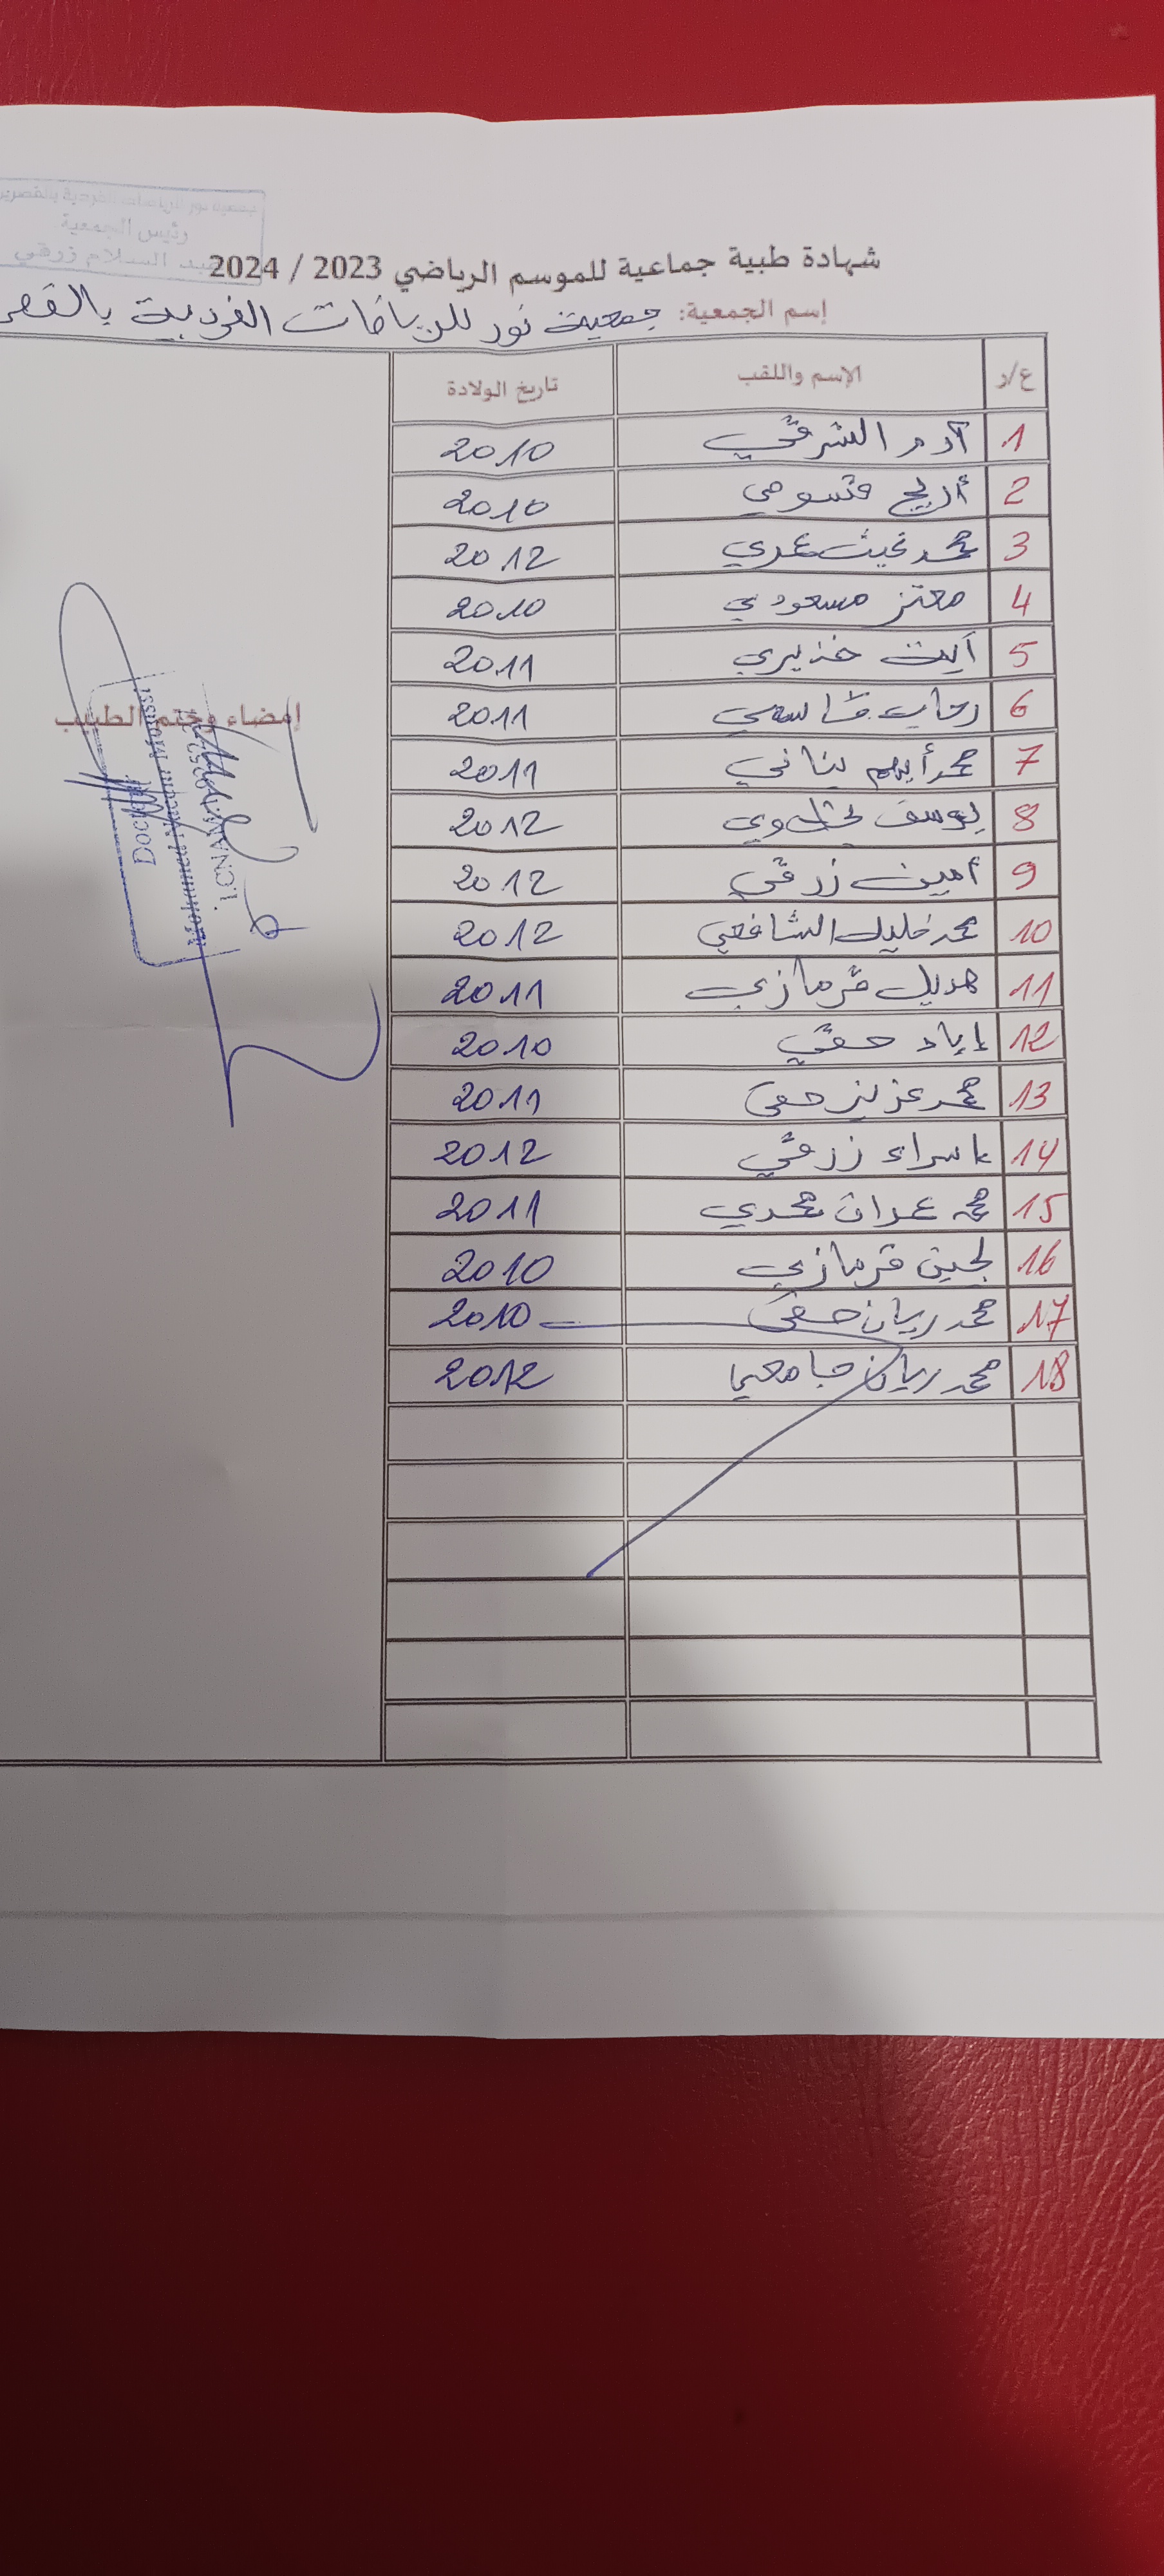 جمعية نور للرياضات الفردية بالقصرين
رئيس الجمعية
عبد السلام زرقي
شهادة طبية جماعية للموسم الرياضي 2023 / 2024
إسم الجمعية: جمعية نور للرياضات الفردية بالقصر
ع/ر الإسم واللقب تاريخ الولادة
1 آدم الشرقي 2010
2 أريج قسومي 2010
3 محمد غيث عمري 2012
4 معتز مسعودي 2010
5 آيت خذيري 2011
6 رحاب قاسمي 2011
7 محمد أيهم بناني 2011
8 يوسف 2012
9 أمين زرقي 2012
10 محمد خليل الشافعي 2012
11 هديل قرمازي 2011
12 إياد حقي 2010
13 محمد عزيز حقي 2011
14 إسراء زرقي 2012
15 محمد عمران محمدي 2011
16 لجين قرمازي 2010
17 محمد ريان حقي 2010
18 محمد ريان جامعي 2012
إمضاء وختم الطبيب
Docteur
Mohamed Nacim Moussi